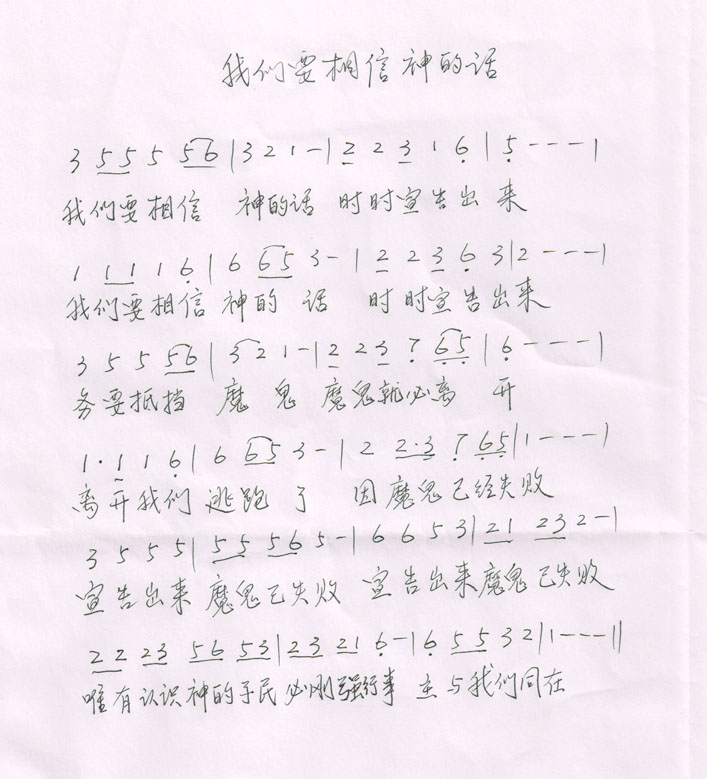 我们要相信神的话
3 5 5 5 5 6 | 3 2 1 - | 2 2 3 1 6 | 5 - - - |
我们要相信 神的话 时时宣告出来
1 1 1 1 6 | 6 6 5 3 - | 2 2 3 6 3 | 2 - - - |
我们要相信神的 话 时时宣告出来
3 5 5 5 6 | 3 2 1 - | 2 2 3 7 6 5 | 6 - - - |
务要抵挡 魔鬼 魔鬼就必离 开
1 · 1 1 6 | 6 6 5 3 - | 2 2 · 3 7 6 5 | 1 - - - |
离开我们 逃跑了 因魔鬼已经失败
3 5 5 5 | 5 5 5 6 5 - | 6 6 5 3 | 2 1 2 3 2 - |
宣告出来 魔鬼已失败 宣告出来魔鬼已失败
2 2 2 3 5 6 5 3 | 2 3 2 1 6 - | 6 5 5 3 2 | 1 - - - ||
唯有认识神的子民必刚强行事 主与我们同在